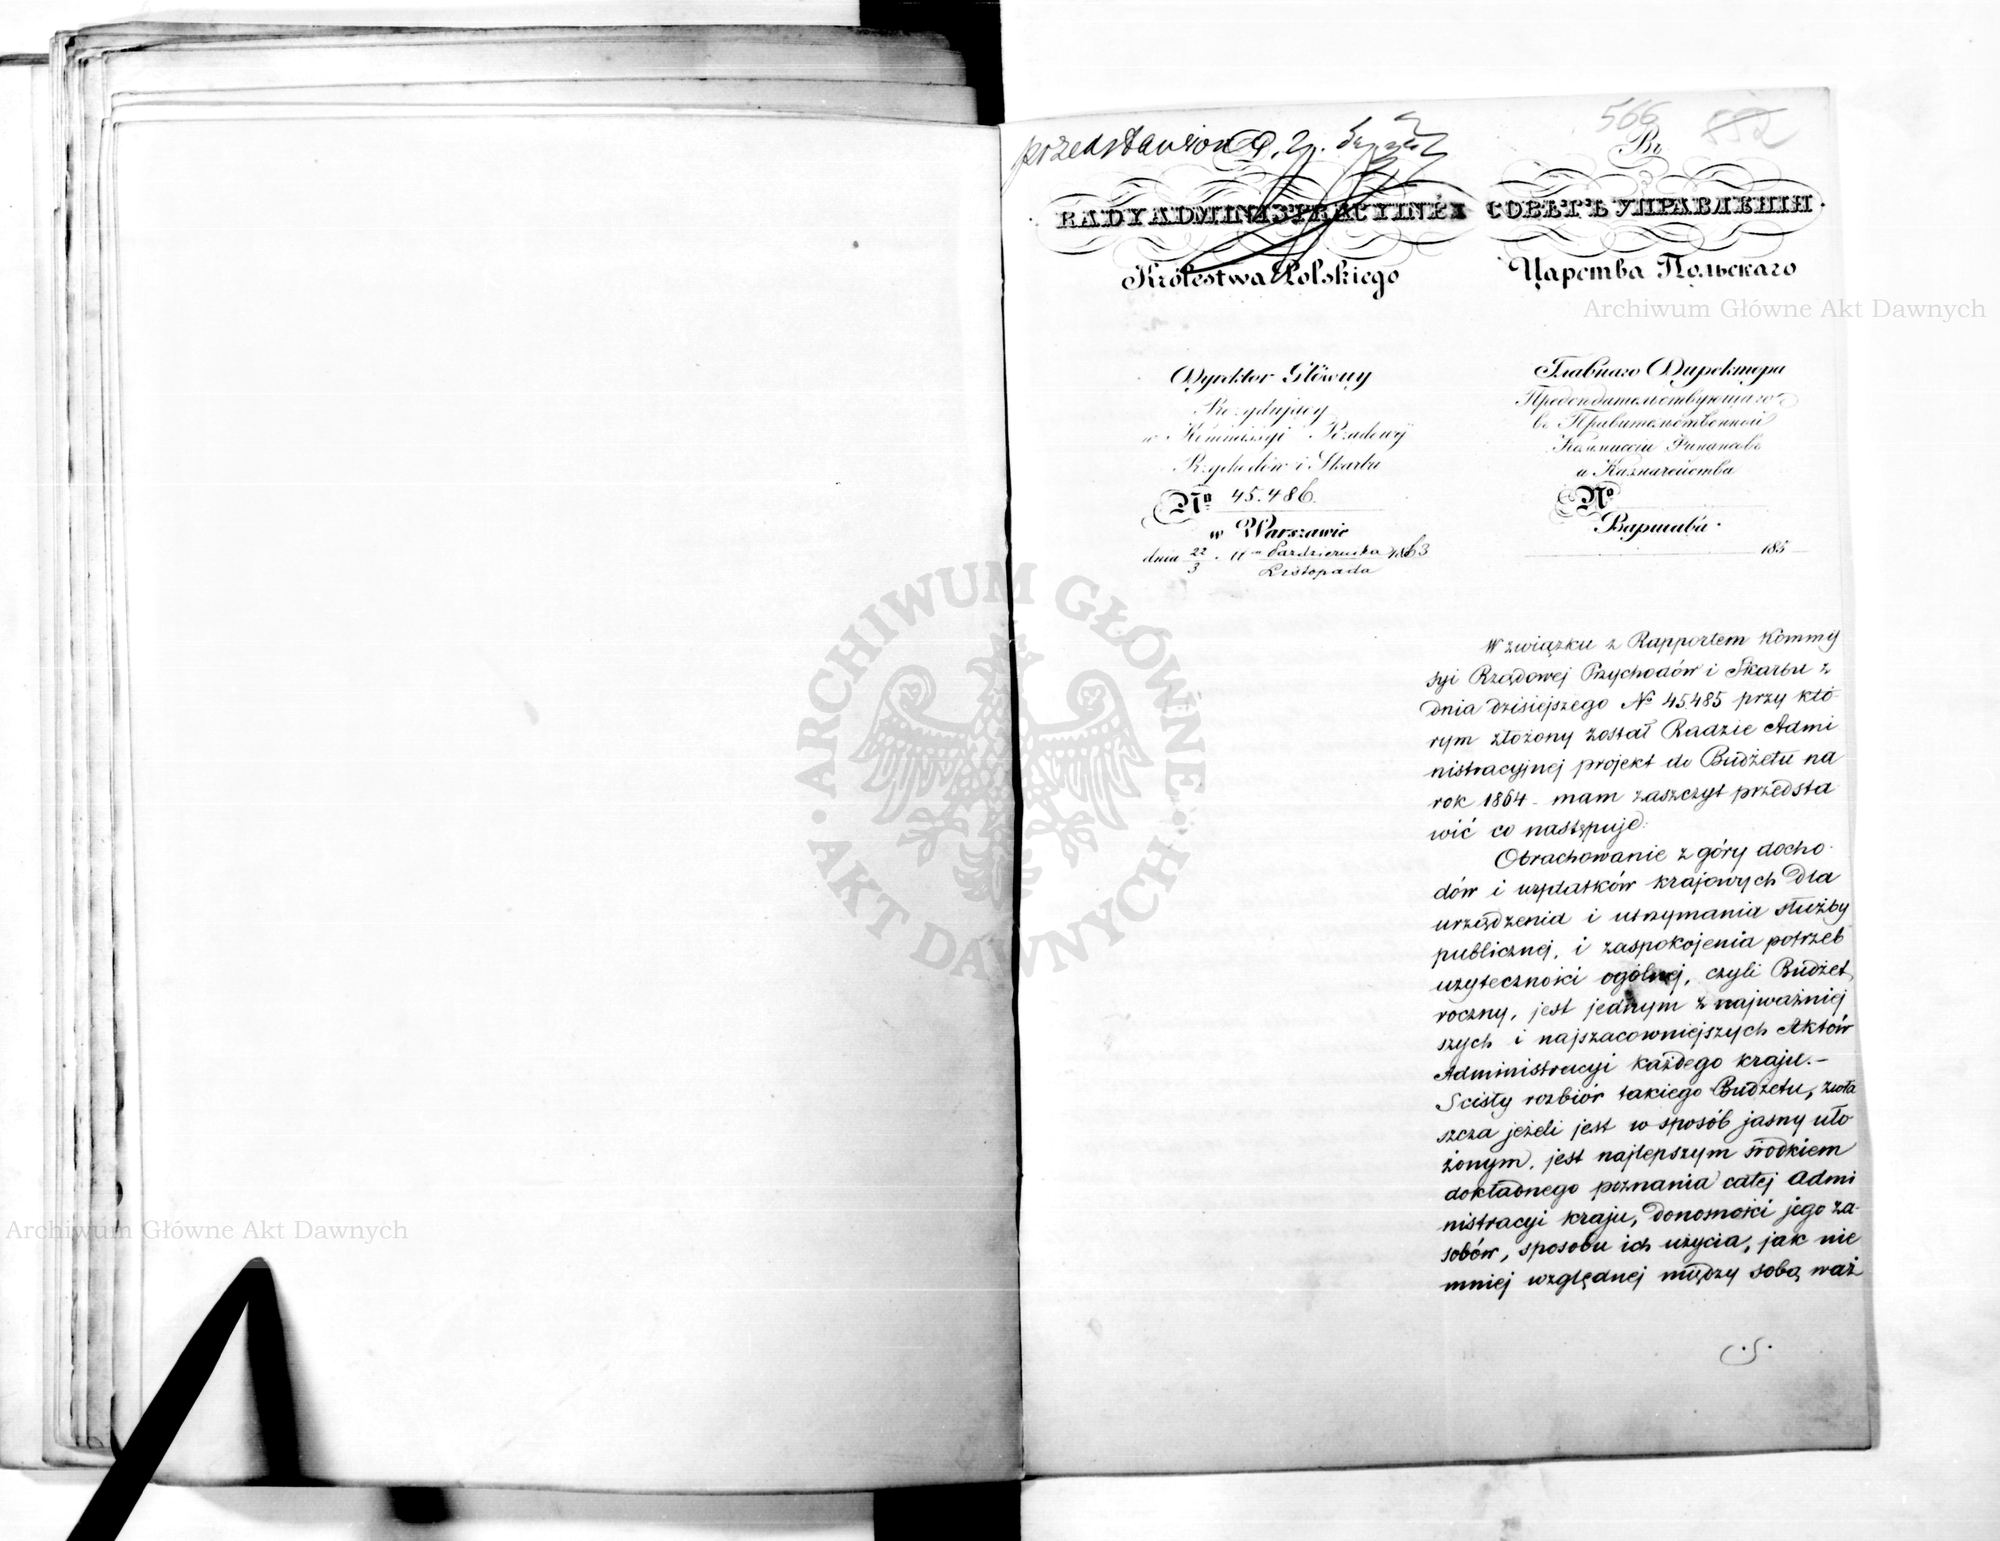 566
przedstawiono
Въ
RADY ADMINISTRACYINÉJ
СОВѢТЪ УПРАВЛЕНІЯ
Królestwa Polskiego
Царства Польскаго
Archiwum Główne Akt Dawnych
Dyrektor Główny
Prezydujący
w Kommissyi Rządowéj
Przychodów i Skarbu
№ 45.486.
w Warszawie
dnia 22/3 Października/Listopada 1863
Главнаго Директора
Предсѣдательствующаго
въ Правительственной
Коммиссіи Финансовъ
и Казначейства
№
Варшава
185
W związku z Rapportem Kommy
syi Rządowej Przychodów i Skarbu z
dnia dzisiejszego № 45485 przy któ-
rym złożony został Radzie Admi
nistracyjnej projekt do Budżetu na
rok 1864 - mam zaszczyt przedsta
wić co następuje:
Obrachowanie z góry docho-
dów i wydatków krajowych dla
urządzenia i utrzymania służby
publicznej, i zaspokojenia potrzeb
użyteczności ogólnej, czyli Budżet
roczny, jest jednym z najważniej
szych i najszacowniejszych Aktów
Administracyi każdego kraju.-
Scisły rozbiór takiego Budżetu, zwła
szcza jeżeli jest w sposób jasny uło
żonym, jest najlepszym środkiem
dokładnego poznania całej Admi
nistracyi kraju, donosności jego za-
sobów, sposobu ich użycia, jak nie
mniej względnej między sobą waż
ARCHIWUM GŁÓWNE AKT DAWNYCH
Archiwum Główne Akt Dawnych